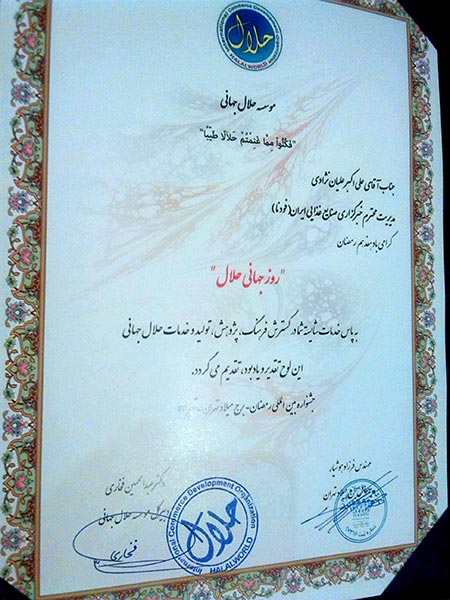 حلال
International Commerce Development Organization
HALALWORLD
موسسه حلال جهانی
"فَكُلُوا مِمَّا غَنِمْتُمْ حَلَالًا طَيِّبًا"
جناب آقای علی اکبر علیان نژادی
مدیریت محترم خبرگزاری صنایع غذایی ایران (فودنا)
گرامی باد هفدهم رمضان
"روز جهانی حلال"
به پاس خدمات شایسته شما در گسترش فرهنگ، پژوهش، تولید و خدمات حلال جهانی
این لوح تقدیر و یادبود، تقدیم می گردد.
جشنواره بین المللی رمضان - برج میلاد تهران
مهندس فرزاد هوشیار
دکتر عبدالحسین فخاری
دبیرکل موسسه حلال جهانی
International Commerce Development Organization
حلال
HALALWORLD